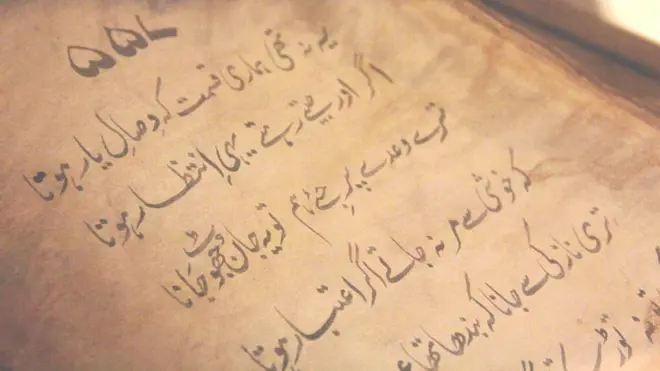 ۵۵۷
یہ نہ تھی ہماری قسمت کہ وصالِ یار ہوتا
اگر اور جیتے رہتے یہی انتظار ہوتا
ترے وعدے پر جئے ہم تو یہ جان جھوٹ جانا
کہ خوشی سے مر نہ جاتے اگر اعتبار ہوتا
تری نازکی سے جانا کہ بندھا تھا
نہ توڑ